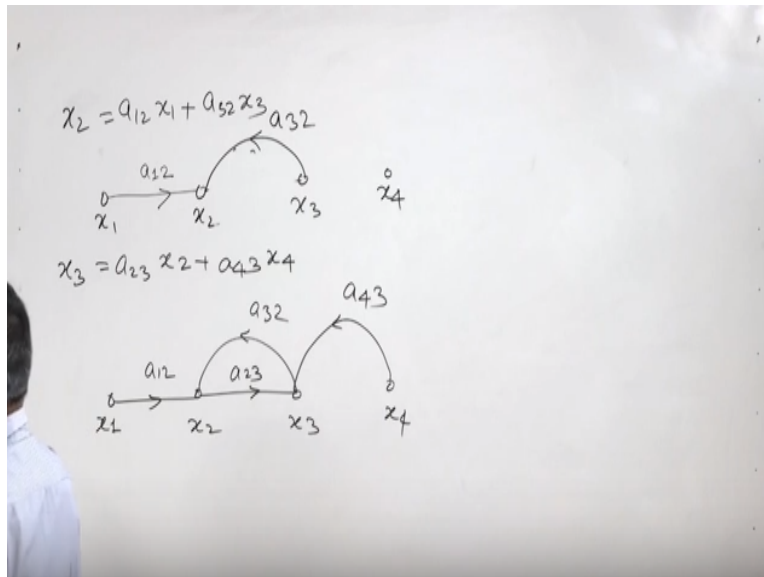 x₂ = a₁₂ x₁ + a₃₂ x₃
a₃₂
a₁₂
x₁ x₂ x₃ x₄
x₃ = a₂₃ x₂ + a₄₃ x₄
a₃₂ a₄₃
a₁₂ a₂₃
x₁ x₂ x₃ x₄